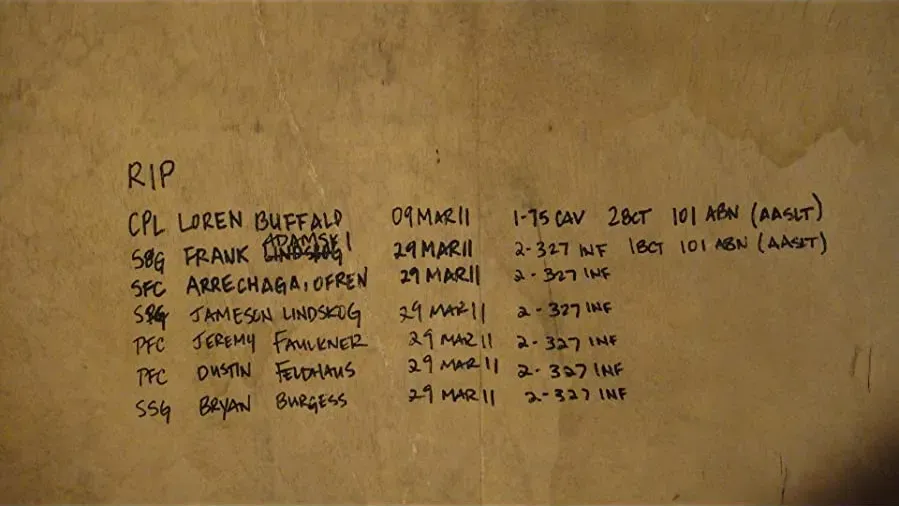 RIP
CPL LOREN BUFFALO 09 MAR 11 1-75 CAV 2BCT 101 ABN (AASLT)
SSG FRANK ADAMSKI 29 MAR 11 2-327 INF 1BCT 101 ABN (AASLT)
SFC ARRECHAGA, OFREN 29 MAR 11 2-327 INF
JAMESON LINDSKOG 29 MAR 11 2-327 INF
PFC JEREMY FAULKNER 29 MAR 11 2-327 INF
PFC DUSTIN FELDHAUS 29 MAR 11 2-327 INF
SSG BRYAN BURGESS 29 MAR 11 2-327 INF